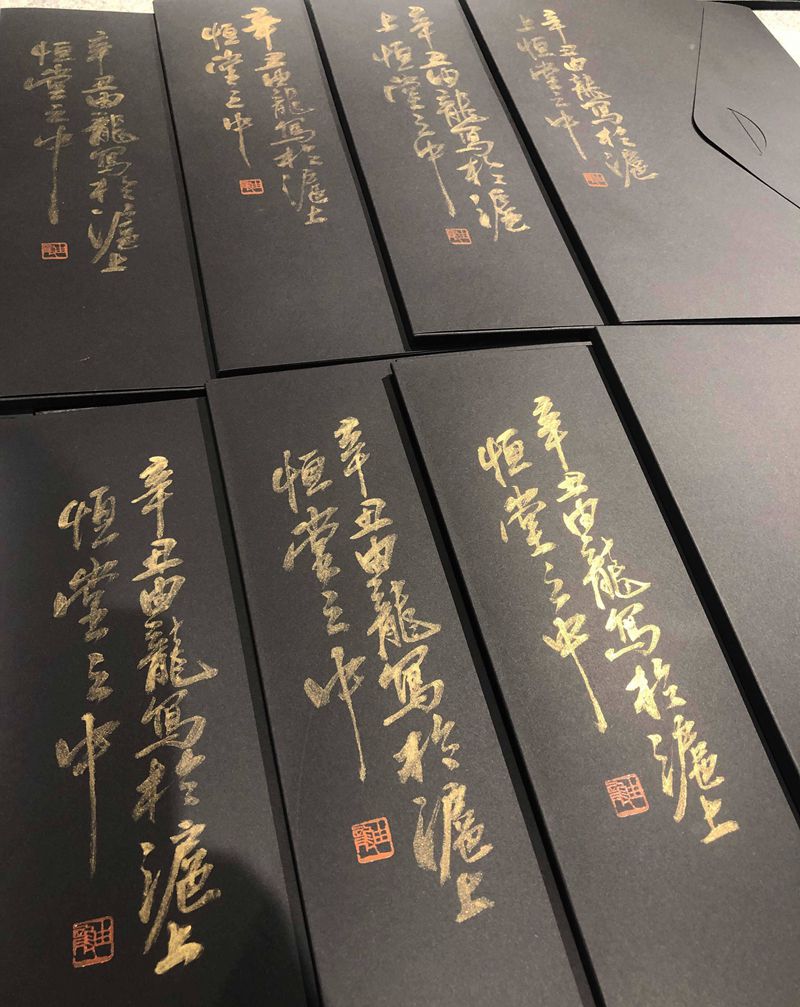 辛丑由龍寫於滬上
恒堂之中
辛丑由龍寫於滬上
恒堂之中
辛丑由龍寫於滬
上恒堂之中
辛丑由龍寫於滬
上恒堂之中
辛丑由龍寫於滬上
恒堂之中
辛丑由龍寫於滬上
恒堂之中
辛丑由龍寫於滬上
恒堂之中